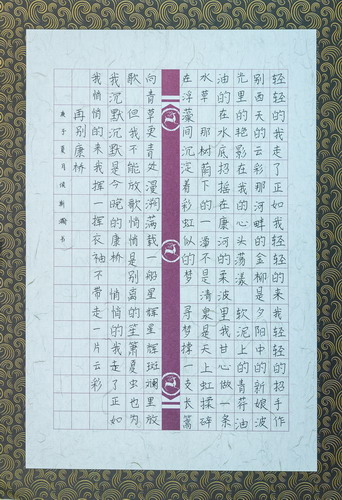 轻轻的我走了正如我轻轻的来我轻轻的招手作
别西天的云彩那河畔的金柳是夕阳中的新娘波
光里的艳影在我的心头荡漾 软泥上的青荇油
油的在水底招摇在康河的柔波里我甘心做一条
水草 那树荫下的一潭不是清泉是天上虹揉碎
在浮藻间沉淀着彩虹似的梦 寻梦撑一支长篙
向青草更青处漫溯满载一船星辉星辉斑斓里放
歌 但我不能放歌悄悄是别离的笙箫夏虫也为
我沉默沉默是今晚的康桥 悄悄的我走了正如
我悄悄的来我挥一挥衣袖不带走一片云彩
再别康桥
庚子夏月 书